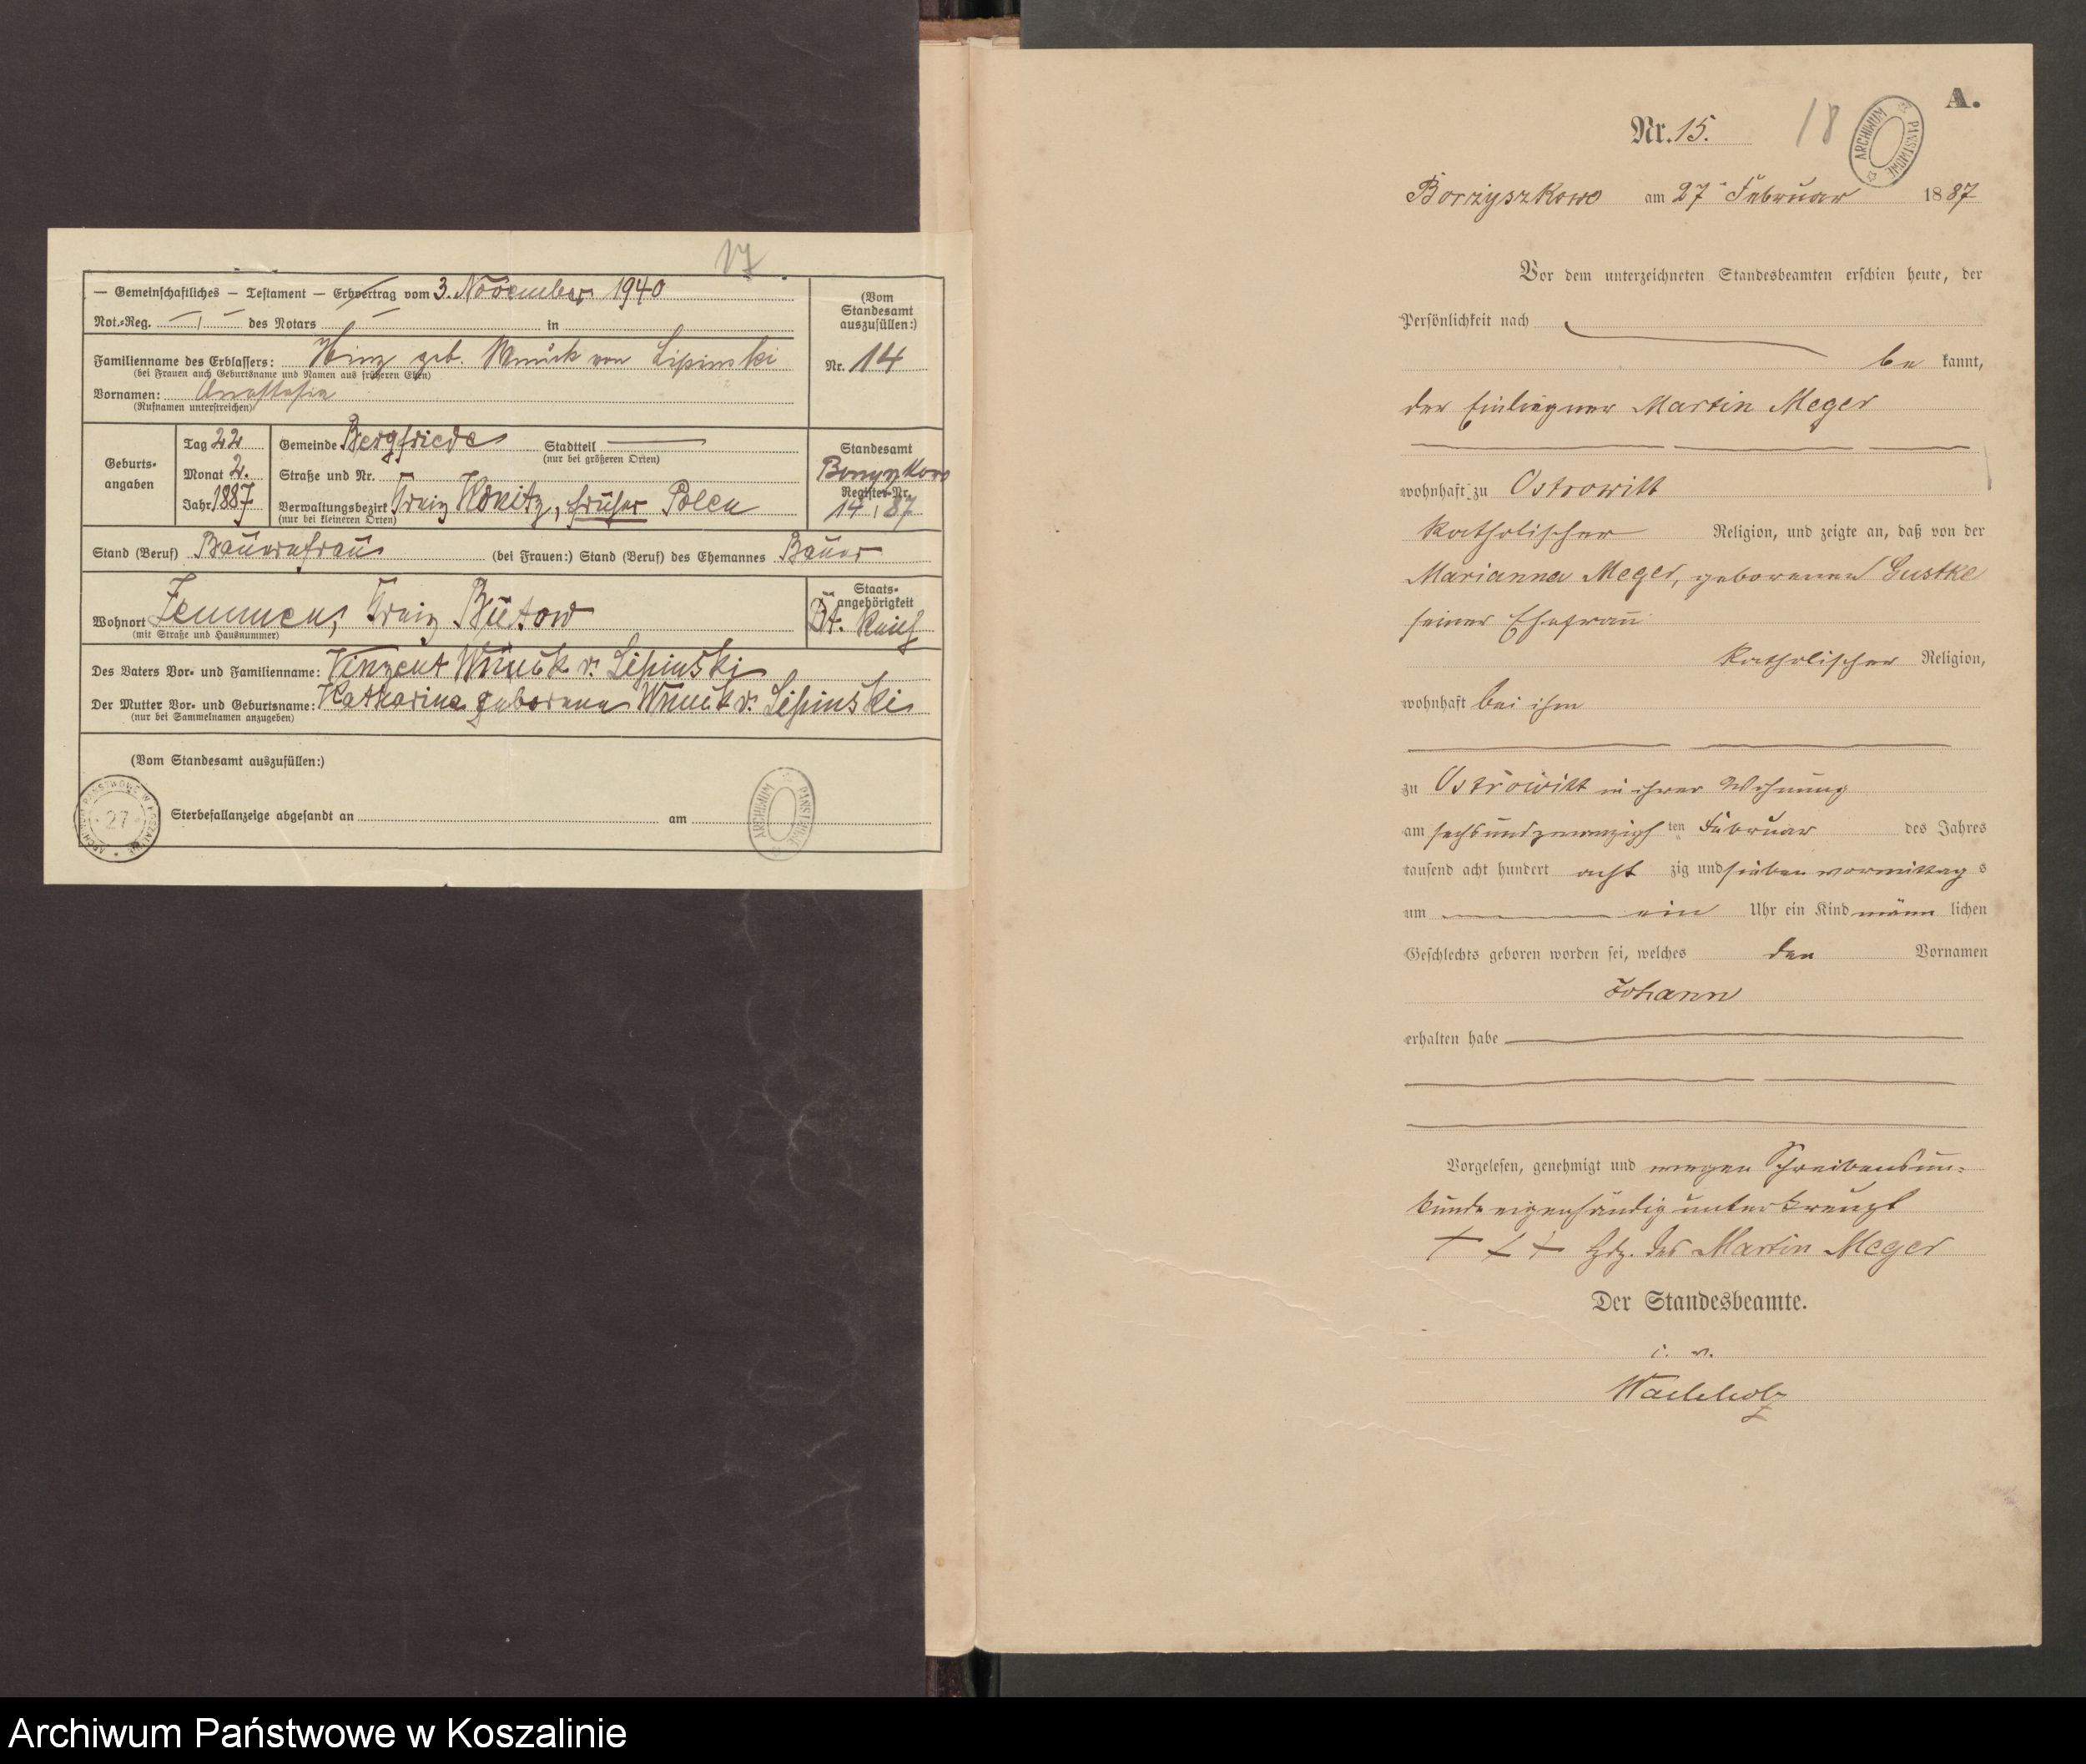 17
— Gemeinschaftliches — Testament — Erbvertrag vom 3. November 1940
Not.-Reg. — / — des Notars — in
Familienname des Erblassers: Hinz geb. Wnuck von Lipinski
(bei Frauen auch Geburtsname und Namen aus früheren Ehen)
Vornamen: Anastasia
(Rufnamen unterstreichen)
(Vom
Standesamt
auszufüllen:)
Nr. 14
Geburts-
angaben
Tag 22
Monat 2.
Jahr 1887
Gemeinde Bergfriede Stadtteil —
(nur bei größeren Orten)
Straße und Nr.
Verwaltungsbezirk Kreis Konitz, früher Polen
(nur bei kleineren Orten)
Standesamt
Register-Nr.
14 / 87
Stand (Beruf) Bauersfrau (bei Frauen:) Stand (Beruf) des Ehemannes Bauer
Wohnort Zemmen, Kreis Bütow
(mit Straße und Hausnummer)
Staats-
angehörigkeit
Dt. Reich
Des Vaters Vor- und Familienname: Vinzent Wnuck v. Lipinski
Der Mutter Vor- und Geburtsname: Katharina geborene Wnuck v. Lipinski
(nur bei Sammelnamen anzugeben)
(Vom Standesamt auszufüllen:)
Sterbefallanzeige abgesandt an am
27
ARCHIWUM PAŃSTWOWE W KOSZALINIE
ARCHIWUM PAŃSTWOWE
A.
Nr. 15.
18
ARCHIWUM PAŃSTWOWE
Borzyszkowo am 27 Februar 1887
Vor dem unterzeichneten Standesbeamten erschien heute, der
Persönlichkeit nach
be kannt,
der Einliegner Martin Meger
wohnhaft zu Ostrowitt
katholischer Religion, und zeigte an, daß von der
Marianna Meger, geborenen Gustke
seiner Ehefrau
katholischer Religion,
wohnhaft bei ihm
zu Ostrowitt in ihrer Wohnung
am sechsundzwanzigsten Februar des Jahres
tausend acht hundert acht zig und sieben vormittag s
um ein Uhr ein Kind männ lichen
Geschlechts geboren worden sei, welches den Vornamen
Johann
erhalten habe
Vorgelesen, genehmigt und wegen Schreibensun-
kunde eigenhändig unterkreuzt
+ + + Hdz. des Martin Meger
Der Standesbeamte.
i. v.
Wachholz
Archiwum Państwowe w Koszalinie